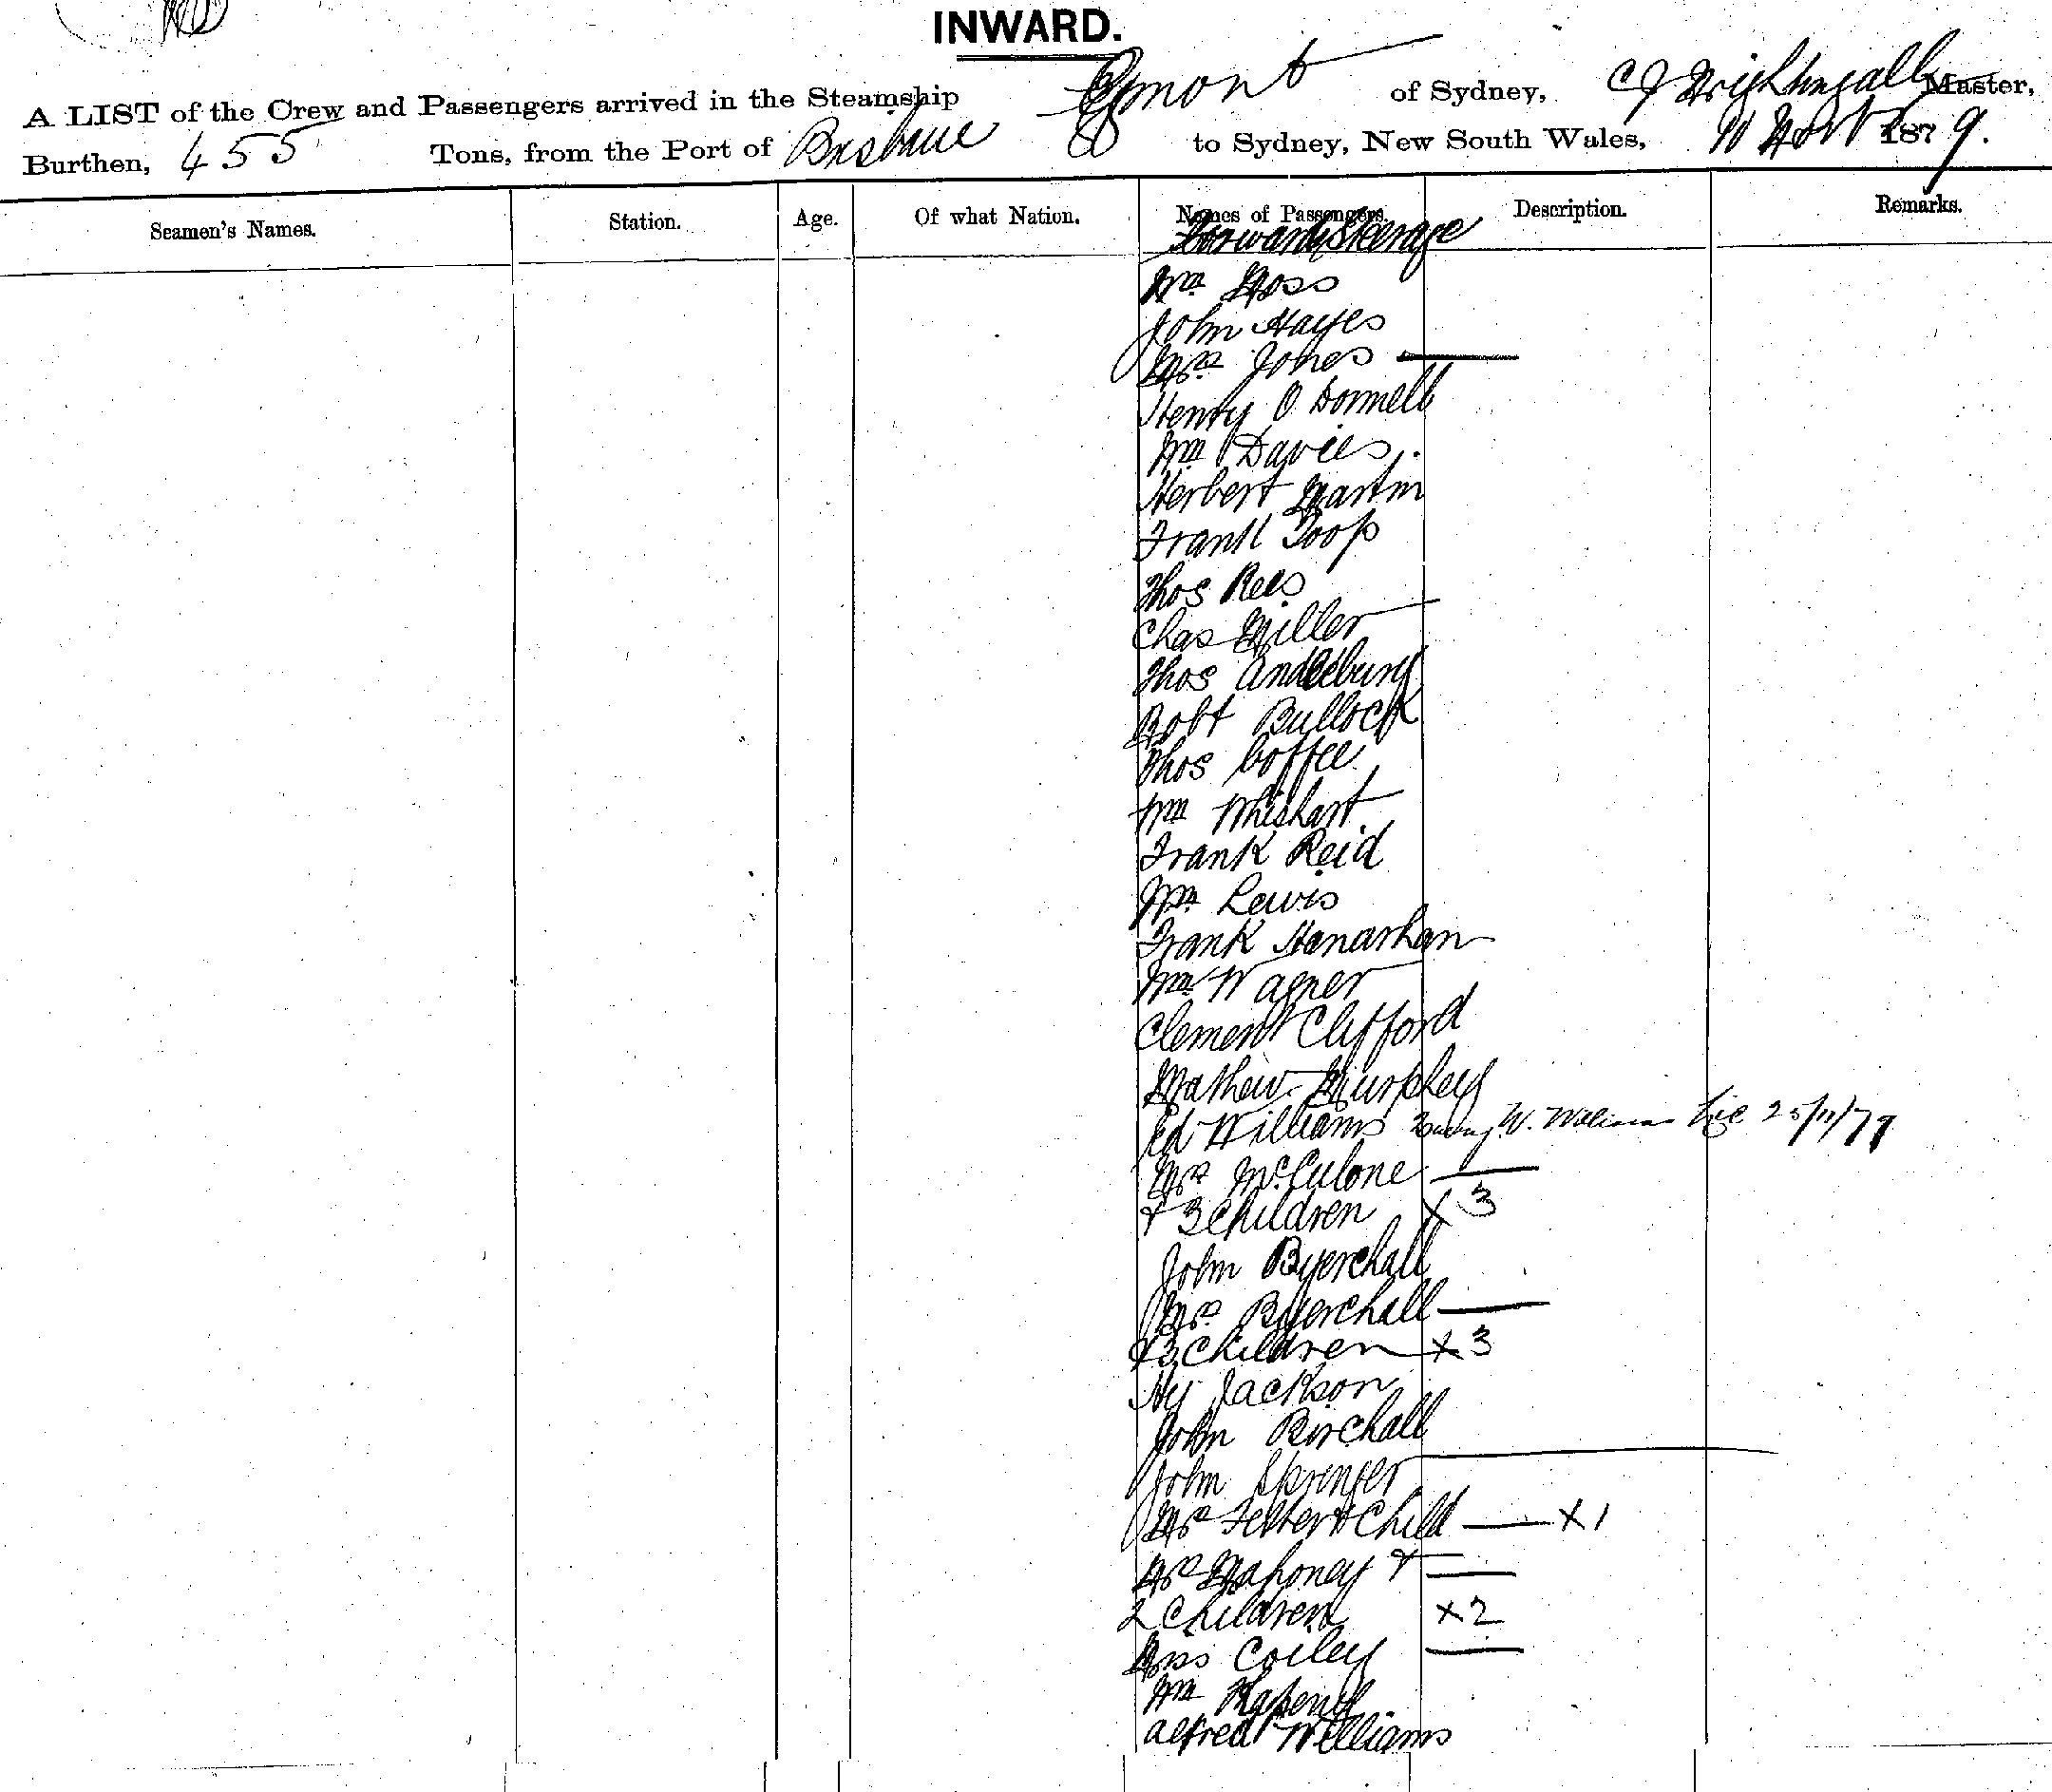 INWARD.
A LIST of the Crew and Passengers arrived in the Steamship Egmont of Sydney, C J Nightingall Master,
Burthen, 455 Tons, from the Port of Brisbane to Sydney, New South Wales, 11 Novr 1879.
Seamen's Names. Station. Age. Of what Nation. Names of Passengers. Description. Remarks.
Forward Steerage
Wm Moss
John Hayes
Mrs Jones
Henry O Donnell
Wm Davies
Herbert Martin
Frank Toop
Thos Rees
Chas Miller
Thos
Robt Bullock
Thos Coffee
Wm Whishart
Frank Reid
Wm Lewis
Frank Hanarhan
Wm Wagner
Clement Clifford
Mathew Murphey
Ed Williams W. 25/11/79
Mrs McCulone
& 3 Children X 3
John Byerchall
Mrs Byerchall
& 3 Children X 3
Hy Jackson
John Birchall
John Springer
Mrs & Child X 1
Mrs Mahoney &
2 Children X 2
Miss Coiley
Wm
Alfred Williams